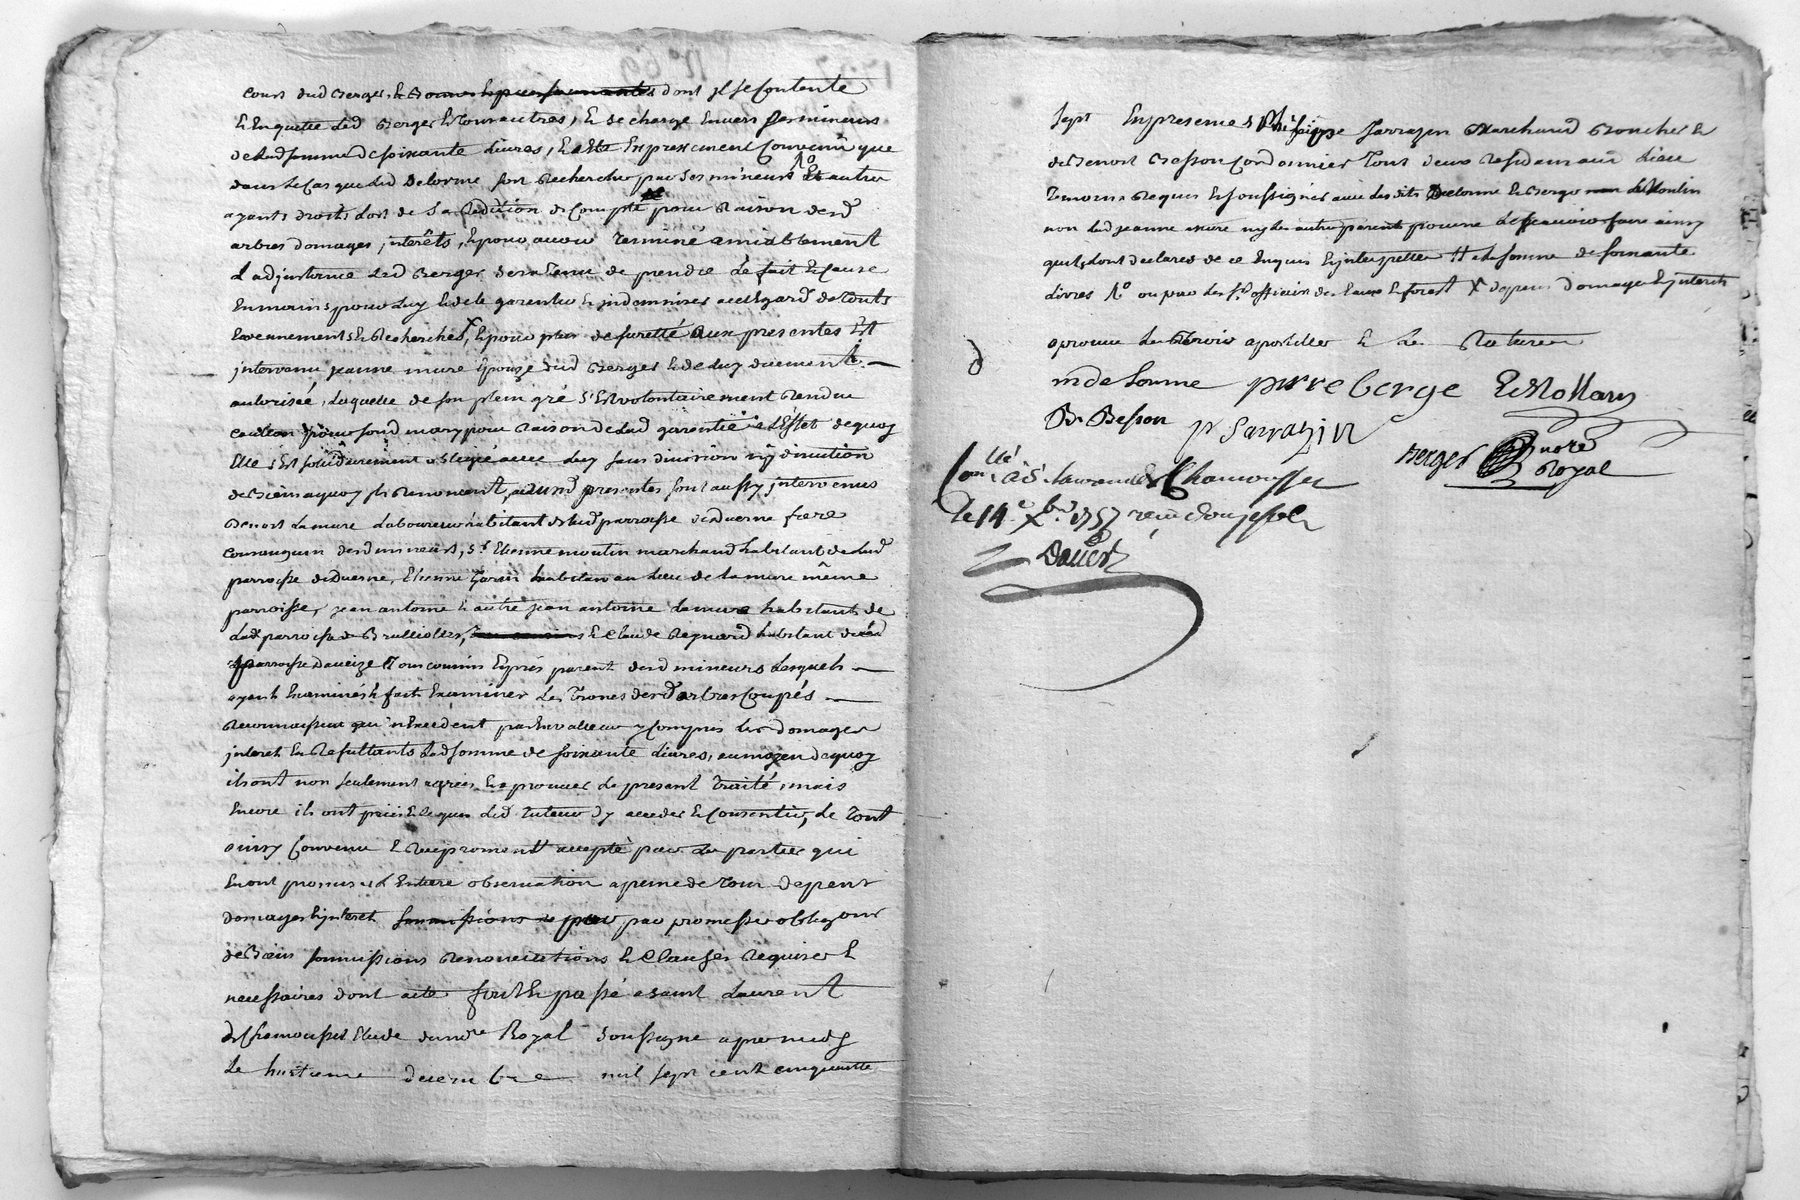 cours dud Berger, dont il se contente
Et acquitte led Berger et tous autres, et se charge envers ses mineurs
de lad somme de soixante livres, Et Expressement Convenû que
dans le Cas que led Delorme soit Recherché par ses mineurs et autre
ayants droits lors de sa Redition de Compte pour Raison desd
arbres domages, interêts, Et pour avoir terminé amiablement
led Berger sera tenu de prendre le fait et Cause
En mains pour luy et de le garentir et indemniser a l'Egard de touts
Evenements et Recherches, Et pour plus de suretté aux presentes Est
intervenu jeanne mure Epouze dud Berger et de luy duement
autorisée, laquelle de son plein gré s'Est volontairement Rendue
caution pour sond mary pour Raison de lad garentie a l'Effet de quoy
Elle s'Est solidairement obligée avec luy sans division ny discution
de Biens a quoy ils Renoncent, auxd presentes sont aussy intervenus
Benoit Lamure Laboureur habitant de lad parroisse de Duerne frere
consanguin desd mineurs, Sr. Etienne moulin marchand habitant de lad
parroisse de Duerne, Etienne habitan au lieu de Lamure même
parroisse, jean antoine et autre jean antoine Lamure habitants de
lad parroisse de Brullioles, et Claude Reynard habitant de lad
parroisse Daveize tous cousins Et près parent desd mineurs lesquels
ayant Examinés et fait Examiner les Trones desd arbres Coupés
Reconnoissent qu'il n'Excedent pas En valleur y Compris les domages
interet En Resultants lad somme de soixante livres, au moyen de quoy
ils ont non seulement agréer et aprouver le present traité, mais
Encore ils ont prié et Requis led tuteur d'y acceder et Consentir, le tout
ainsy Convenu et Reciproquement accepté par les parties qui
En ont promis l'Entiere observation a peine de tous depens
domages et interet par promesses obligaons
de Biens soumissions Renonciations et Clauses Requises Et
necessaires dont acte fait Et passé a saint Laurent
de Chamousset Etude du nore Royal soussigné apres midy
le huitieme decembre mil sept cent cinquante
sept En presences de Philippe Sarrazin Marchand Boucher et
de Benoit Besson Cordonnier tout deux Residents aud Lieu
temoins Requis et soussignés avec lesdits Delorme et Berger et Moulin
non lad jeanne mure ny les autres parents pour ne le sçavoir faire ainsy
qu'ils ont declarés de ce Enquis Et interpellés # et la somme de soixante
livres No ou par les Srs officiers des Eaux et forest X depens domages Et interets
aprouve les Renvois apostilles et les Ratures
m delorme pierre berge E Mollain
B. Besson p Sarrazin
Berger nore Royal
Conllé a St Laurent de Chamousset
le 14e Xbre 1757 recu douze sols
Davest